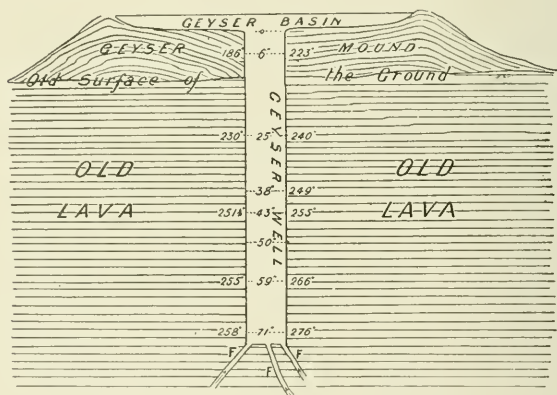 GEYSER BASIN
0
GEYSER 186° 6" 223° MOUND
Old Surface of the Ground
GEYSER WELL
230° 25" 240°
OLD OLD
38" 249°
LAVA 251½° 43" 255° LAVA
50"
255° 59" 266°
258° 71" 276°
F F
F